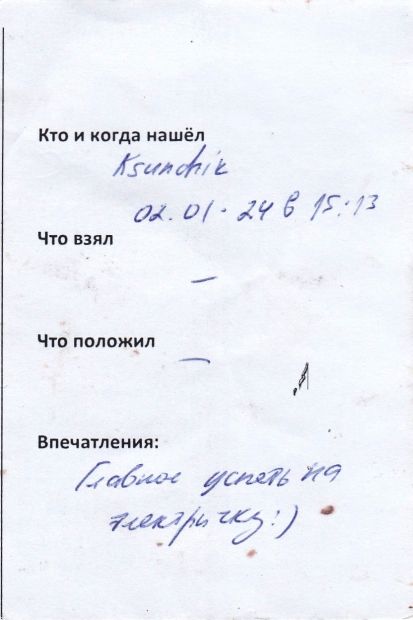 Кто и когда нашёл
Ksunchik
02.01.24 в 15:13
Что взял
—
Что положил
—
Впечатления:
Главное успеть на
электричку:)